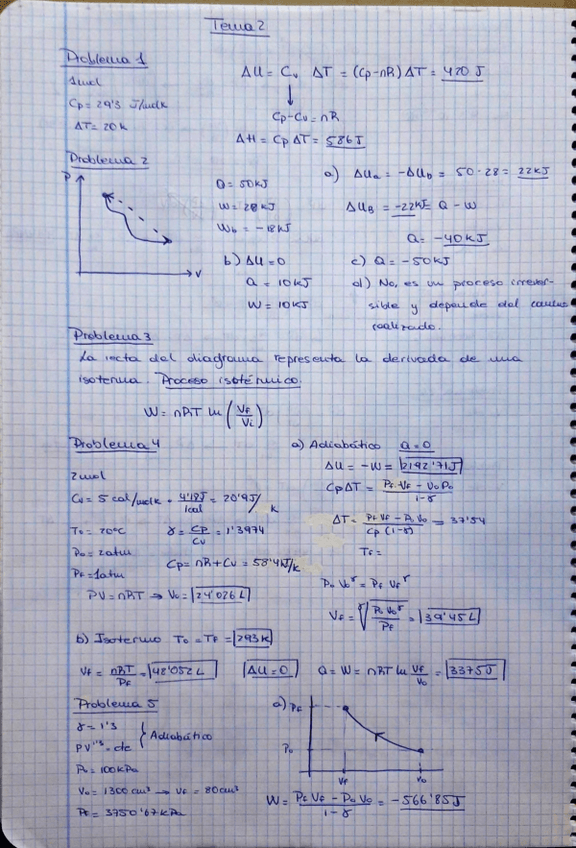 Tema 2
Problema 1
1 mol
Cp = 29'3 J/molK
ΔT = 20K
ΔU = Cv ΔT = (Cp-nR) ΔT = 420 J
↓
Cp-Cv = nR
ΔH = Cp ΔT = 586J
Problema 2
P
V
Q = 50KJ
W = 28KJ
Wb = -18KJ
b) ΔU = 0
Q = 10KJ
W = 10KJ
a) ΔUa = -ΔUb = 50-28 = 22KJ
ΔUB = -22KJ = Q - W
Q = -40KJ
c) Q = -50KJ
d) No, es un proceso irrever-
sible y depende del
realizado.
Problema 3
La recta del diagrama representa la derivada de una
isoterma. Proceso isotérmico.
W = nRT ln (VF/Vi)
Problema 4
2mol
Cv = 5 cal/molK = 4'18J/1cal = 20'9J/K
T0 = 20°C
P0 = 2atm
PF = 1atm
γ = CP/CV = 1'3974
Cp = nR + Cv = 58'4J/K
PV = nRT → V0 = 24'026 L
a) Adiabático Q = 0
ΔU = -W = 2192'71J
CpΔT = PF VF - V0 P0 / 1-γ
ΔT = PF VF - P0 V0 / Cp (1-γ) = 37'54
TF =
P0 V0^γ = PF VF^γ
VF = γ√(P0 V0^γ / PF) = 39'45 L
b) Isotermo T0 = TF = 293K
VF = nRT/PF = 48'052 L ΔU = 0 Q = W = nRT ln VF/V0 = 3375J
Problema 5
γ = 1'3
PV^1'3 = cte
} Adiabático
P0 = 100KPa
V0 = 1300cm³ → VF = 80cm³
PF = 3750'67KPa
a) PF
P0
VF V0
W = PF VF - P0 V0 / 1-γ = -566'85J